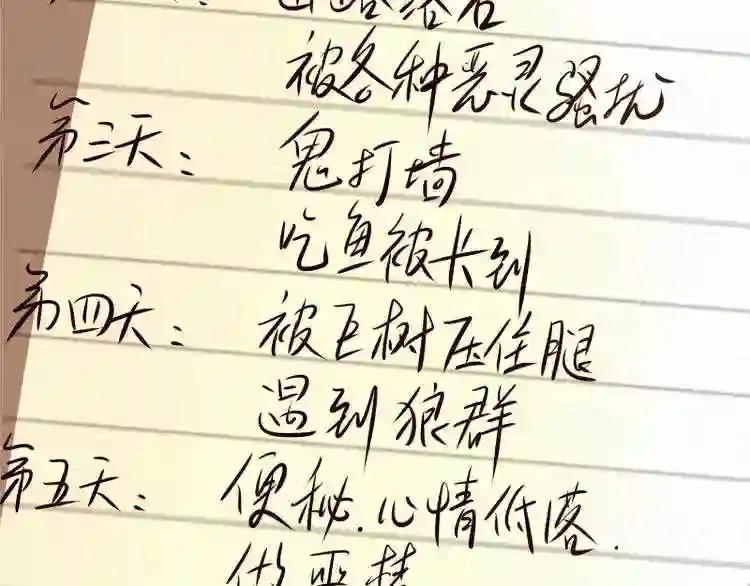 被各种恶灵骚扰
第三天：鬼打墙
吃鱼被卡到
第四天：被巨树压住腿
遇到狼群
第五天：便秘.心情低落.
做恶梦